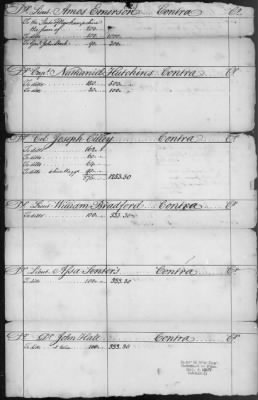 Dr Lieut. Amos Emerson Contra Cr
To the State of Newhampshire
the sum of 200
To ditto 200 1000
To Genl John Stark 40 200
Dr Capt. Nathaniel Hutchins Contra Cr
To ditto 120 500
To ditto 20 100
Dr Col Joseph Cilley Contra Cr
To ditto
To ditto
To ditto
To ditto
1253.30
Dr Lieut William Bradford Contra Cr
To ditto 100 333.30
Dr Lieut. Assa Senter's Contra Cr
To ditto 100 333.30
Dr Dr John Hale Contra Cr
To ditto 100 333.30